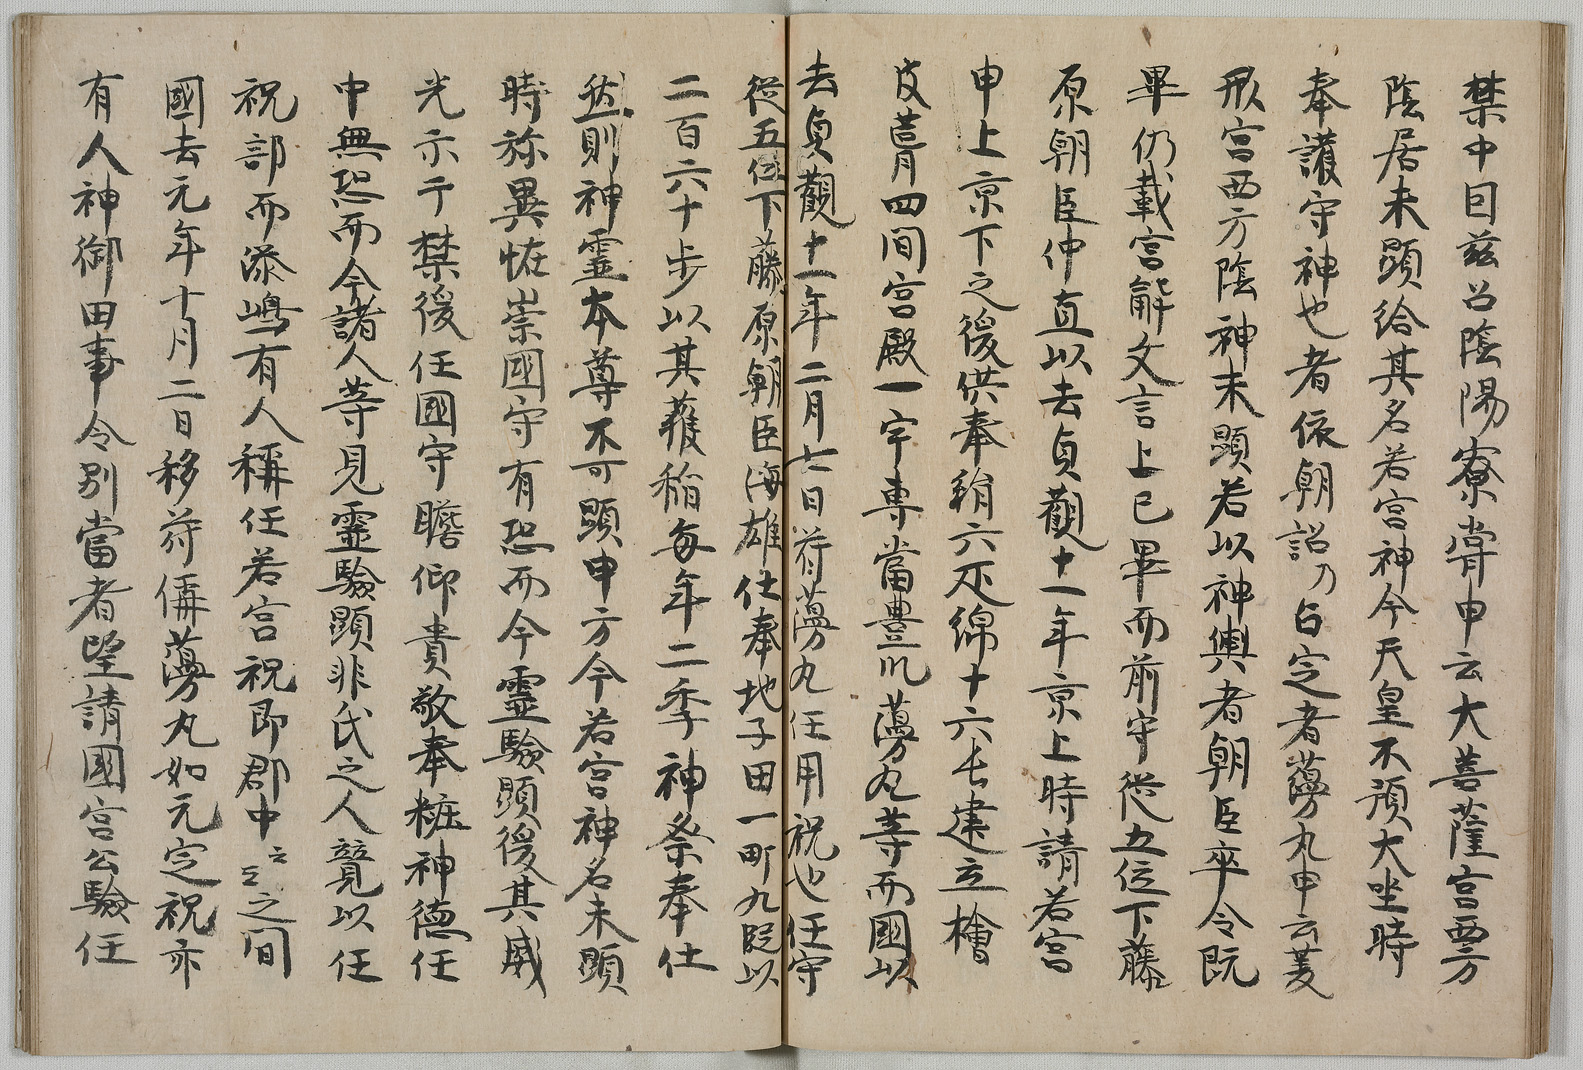 禁中因茲召陰陽寮甞申云大菩薩宮西方
陰居未顕給其名若宮神今天皇不預大坐時
奉護守神也者依朝詔乃占定者薭男丸申云菱
形宮西方陰神未顕若以神輿者朝臣卒令既
畢仍載宮解文言上已畢而前守従五位下藤
原朝臣仲直以去貞觀十一年京上時請若宮
申上京下之後供奉絹六疋綿十六屯建立檜
皮葺四間宮殿一宇専當豊川薭男丸等而國以
去貞觀十一年二月七日苻薭男丸任用祝也任守
従五位下藤原朝臣海雄仕奉地子田一町九段以
二百六十歩以其穫稲毎年二季神祭奉仕
然則神霊本尊不可顕申方今若宮神名未顕
時祢異恠崇國守有恐而今霊験顕後其威
光示于禁後任國守瞻仰貴敬奉粧神德任
中無恐而今諸人等見霊驗顕非氏之人競以任
祝部而添嶋有人稱任若宮祝即郡中云云之間
國去元年十月二日移苻偁薭男丸如元定祝亦
有人神御田事令別當者望請國宮公驗任